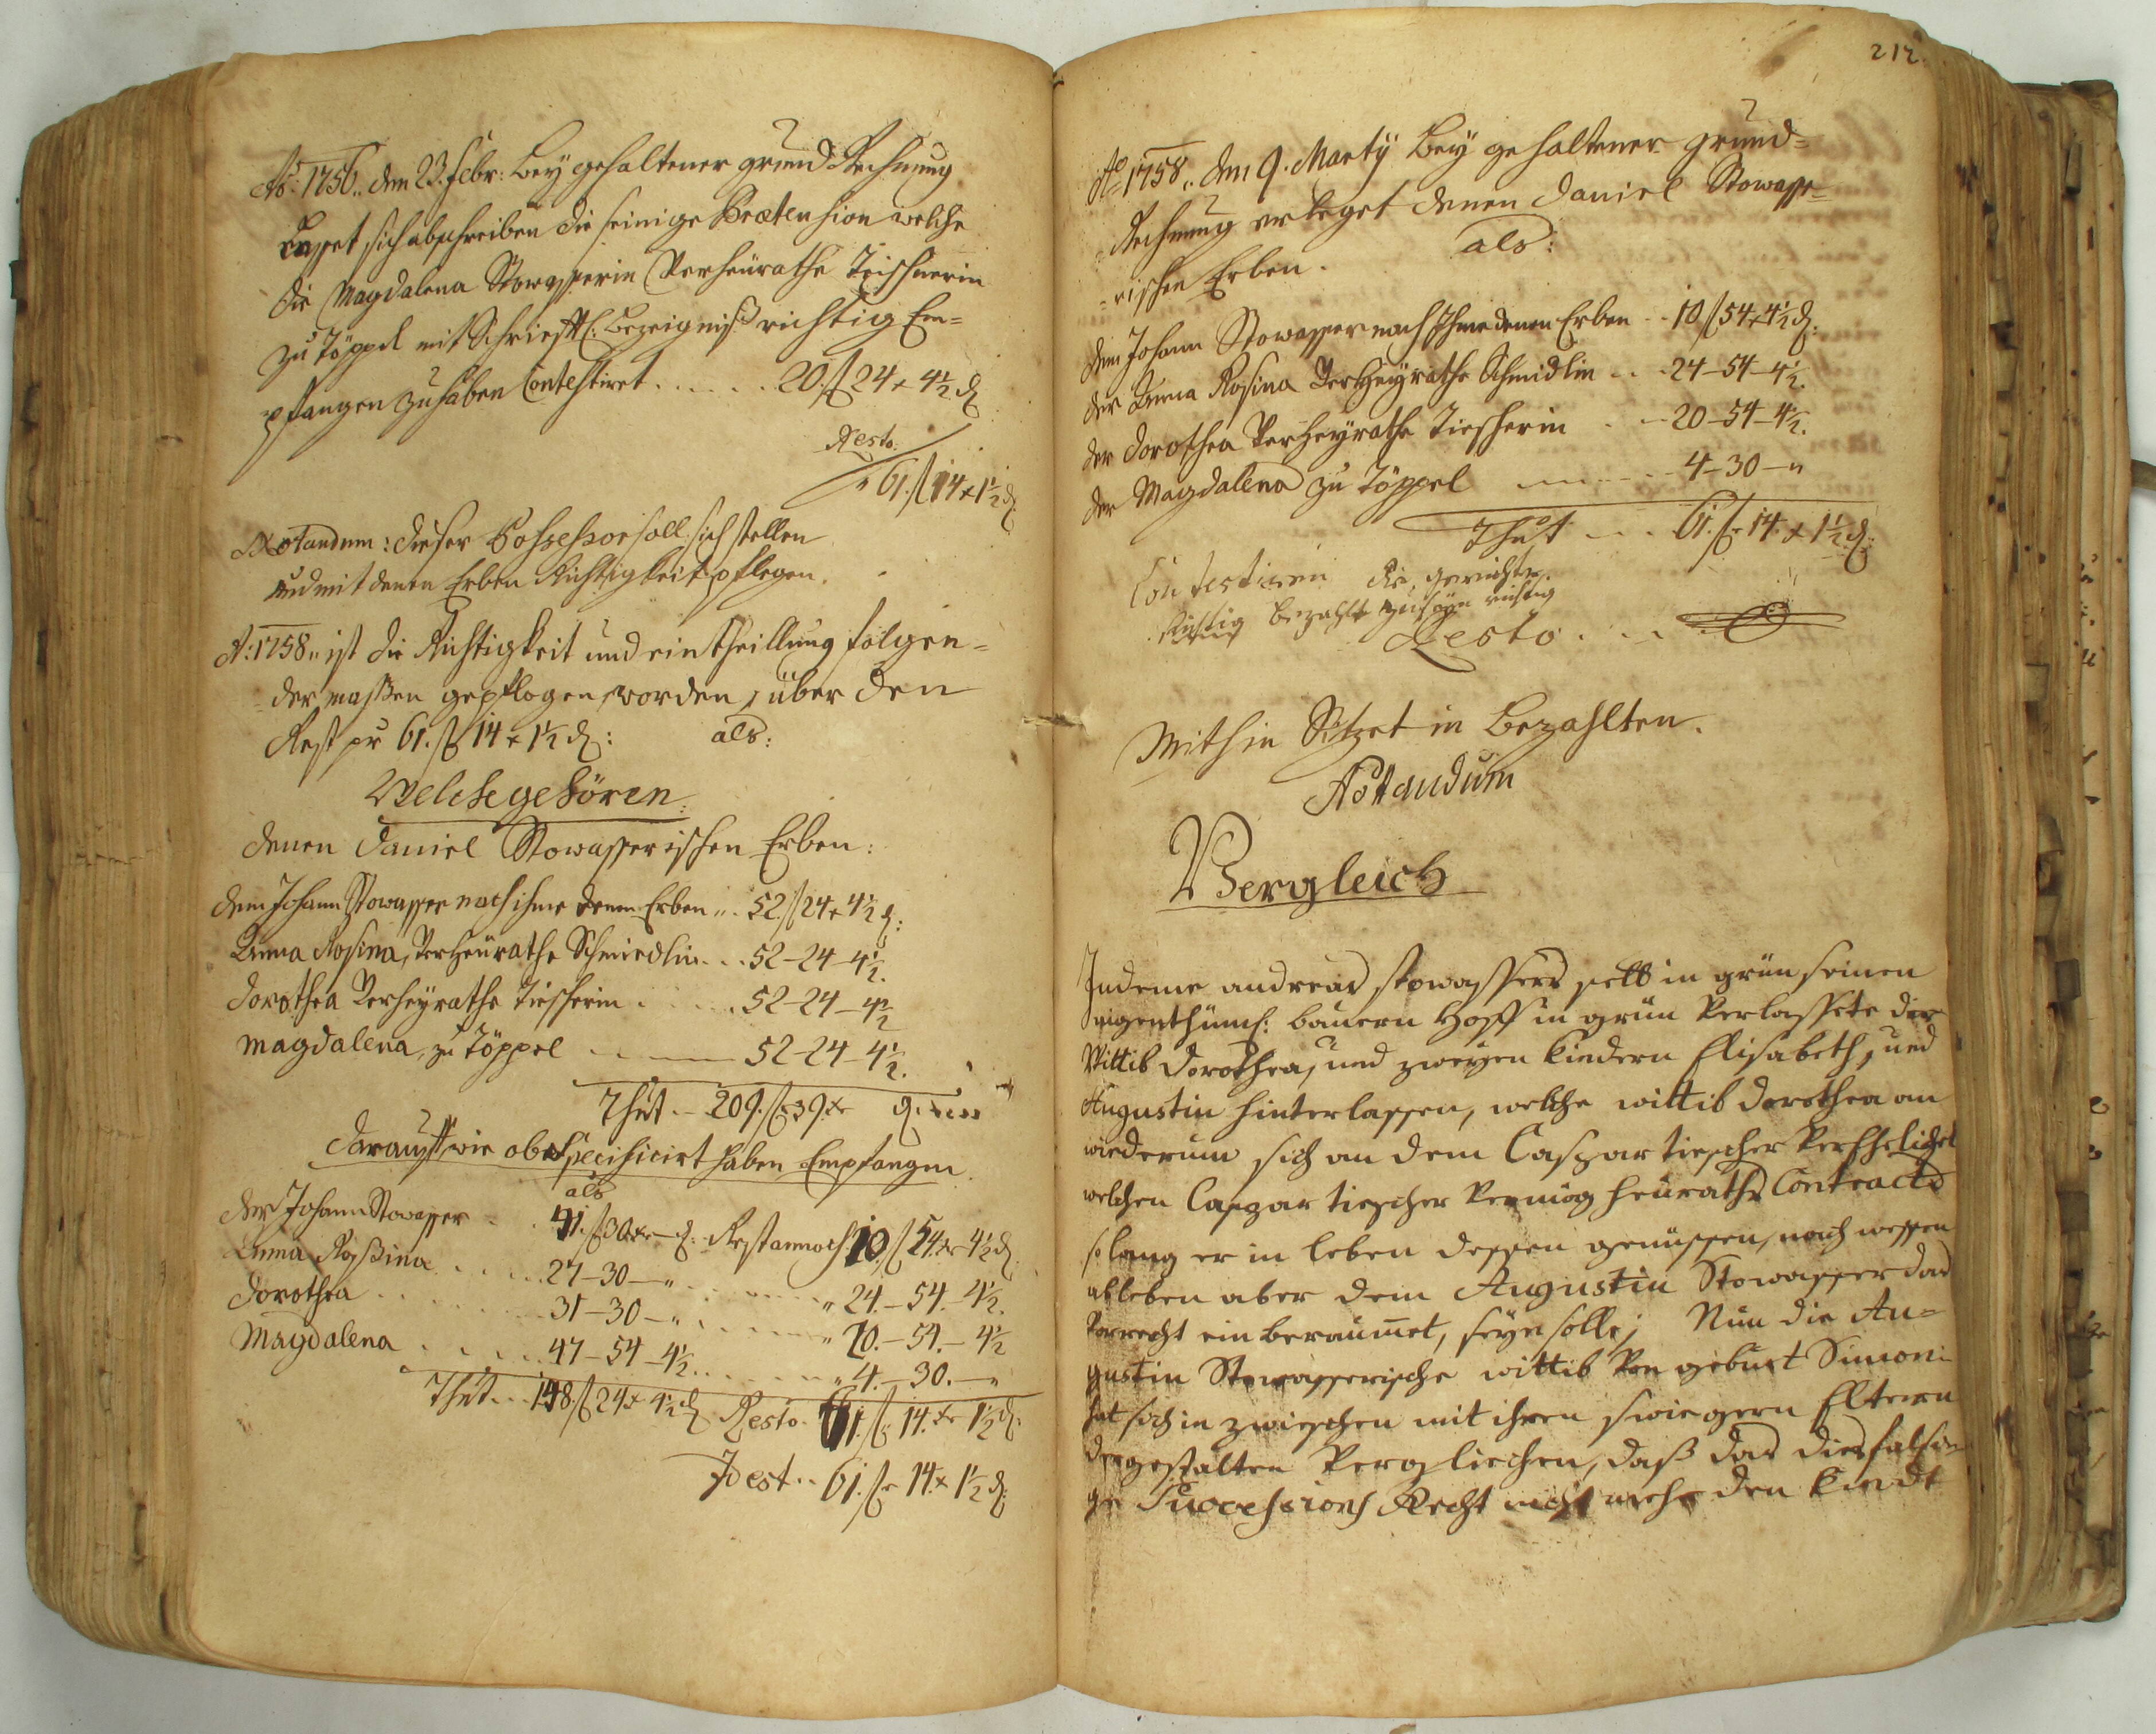 Aõ: 1756.. den 23. Febr: Bey gehaltener grund Rechnung
Lasset sich abschreiben die seinige Prætension welche
die Magdalena Stowasserin Verheürathe Teischnerin
zu Töppel mit Schriefftl: Bezeigniß richtig Em=
pfangen zu haben Contestiret ..... 20. f 24 x 4½ ₰
Resto
" 61. f 14 x 1½ ₰:
Notandum: dieser Possessor soll sich stellen
und mit denen Erben Richtigkeit pflegen.
A: 1758.. ist die Richtigkeit und eintheillung folgen=
=der massen gepflogen worden, über den
Rest pr 61. f 14 x 1½ ₰: als:
Welche gehören:
denen Daniel Stowasserischen Erben:
dem Johann Stowasser nach ihme denen Erben .. 52. f 24 x 4½ ₰:
Anna Rosina, Verheürathe Schmiedlin ... 52 - 24 - 4½.
Dorothea Verheyrathe Tiescherin .... 52 - 24 - 4½
Magdalena, zu Töppel ..... 52 - 24 - 4½.
Thut .. 209. f 39. x
darauff wie obspecificirt haben Empfangen
als
der Johann Stowasser .. 41. f 30. x - ₰: Rest annoch 10. f 54. x 4½ ₰
Anna Roßina ..... 27 - 30 - " ..... " 24. - 54. - 4½.
Dorothea ..... 31 - 30 - " ..... " 20. - 54. - 4½
Magdalena ..... 47 - 54 - 4½ ..... " 4. - 30. - "
Thut ... 148. f 24 x 4½ ₰ Resto . 61. f. 14. x 1½ ₰:
Id est .. 61. f 14. x 1½ ₰:
212.
Aõ 1758.. den 9. Marty Bey gehaltener grund=
=Rechnung erleget denen Daniel Stowasse=
=rischen Erben. als:
dem Johann Stowasser nach Ihme denen Erben .. 10. f 54 x 4½ ₰:
der Anna Rosina Verheyrathe Schmidlin ... 24 - 54 - 4½.
der Dorothea Verheyrathe Tiescherin ... 20 - 54 - 4½.
der Magdalena zu Töppel ..... 4 - 30 - "
Thut ... 61. f. 14. x 1½ ₰:
Contestiren die gerichte
Richtig bezahlt zu seyn richtig
Resto ....
Mithin Sitzet in Bezahlten.
Notandum
Vergleich
Indeme andreas stowassers selb in grün seinen
eigenthüml: bauern Hoff in grün Verlassete der
Wittib Dorothea, und zweyen kindern Elisabeth, und
Augustin hinterlassen, welche wittib Dorothea an
wiederum sich an dem Caspar tiescher Verehelichet
welchen Caspar tiescher Vermög heüraths Contracts
so lang er in leben dessen genüssen, nach wessen
ableben aber dem Augustin Stowasser das
Vorrecht ein beraumet, seyn solle; Nun die Au=
gustin Stowasserische wittib Von geburt Simoni
hat sich in zwischen mit ihren schwiegern Eltern
dergestalten Vergliechen, daß das diesfalsi=
ge Successions Recht nicht mehr den kindt